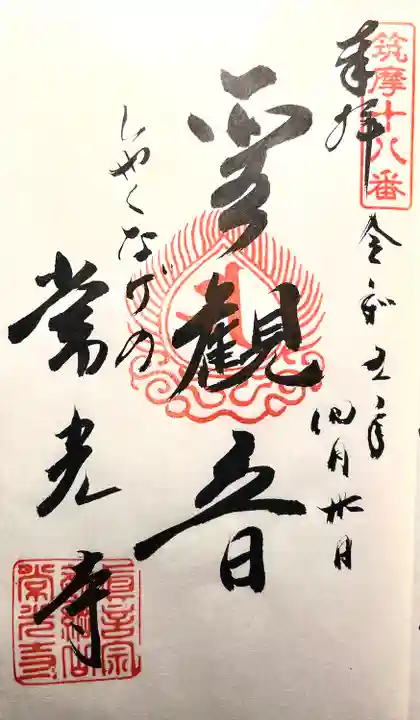 筑摩十八番
奉拝
令和五年四月卅日
聖観音
しゃくなげの
常光寺